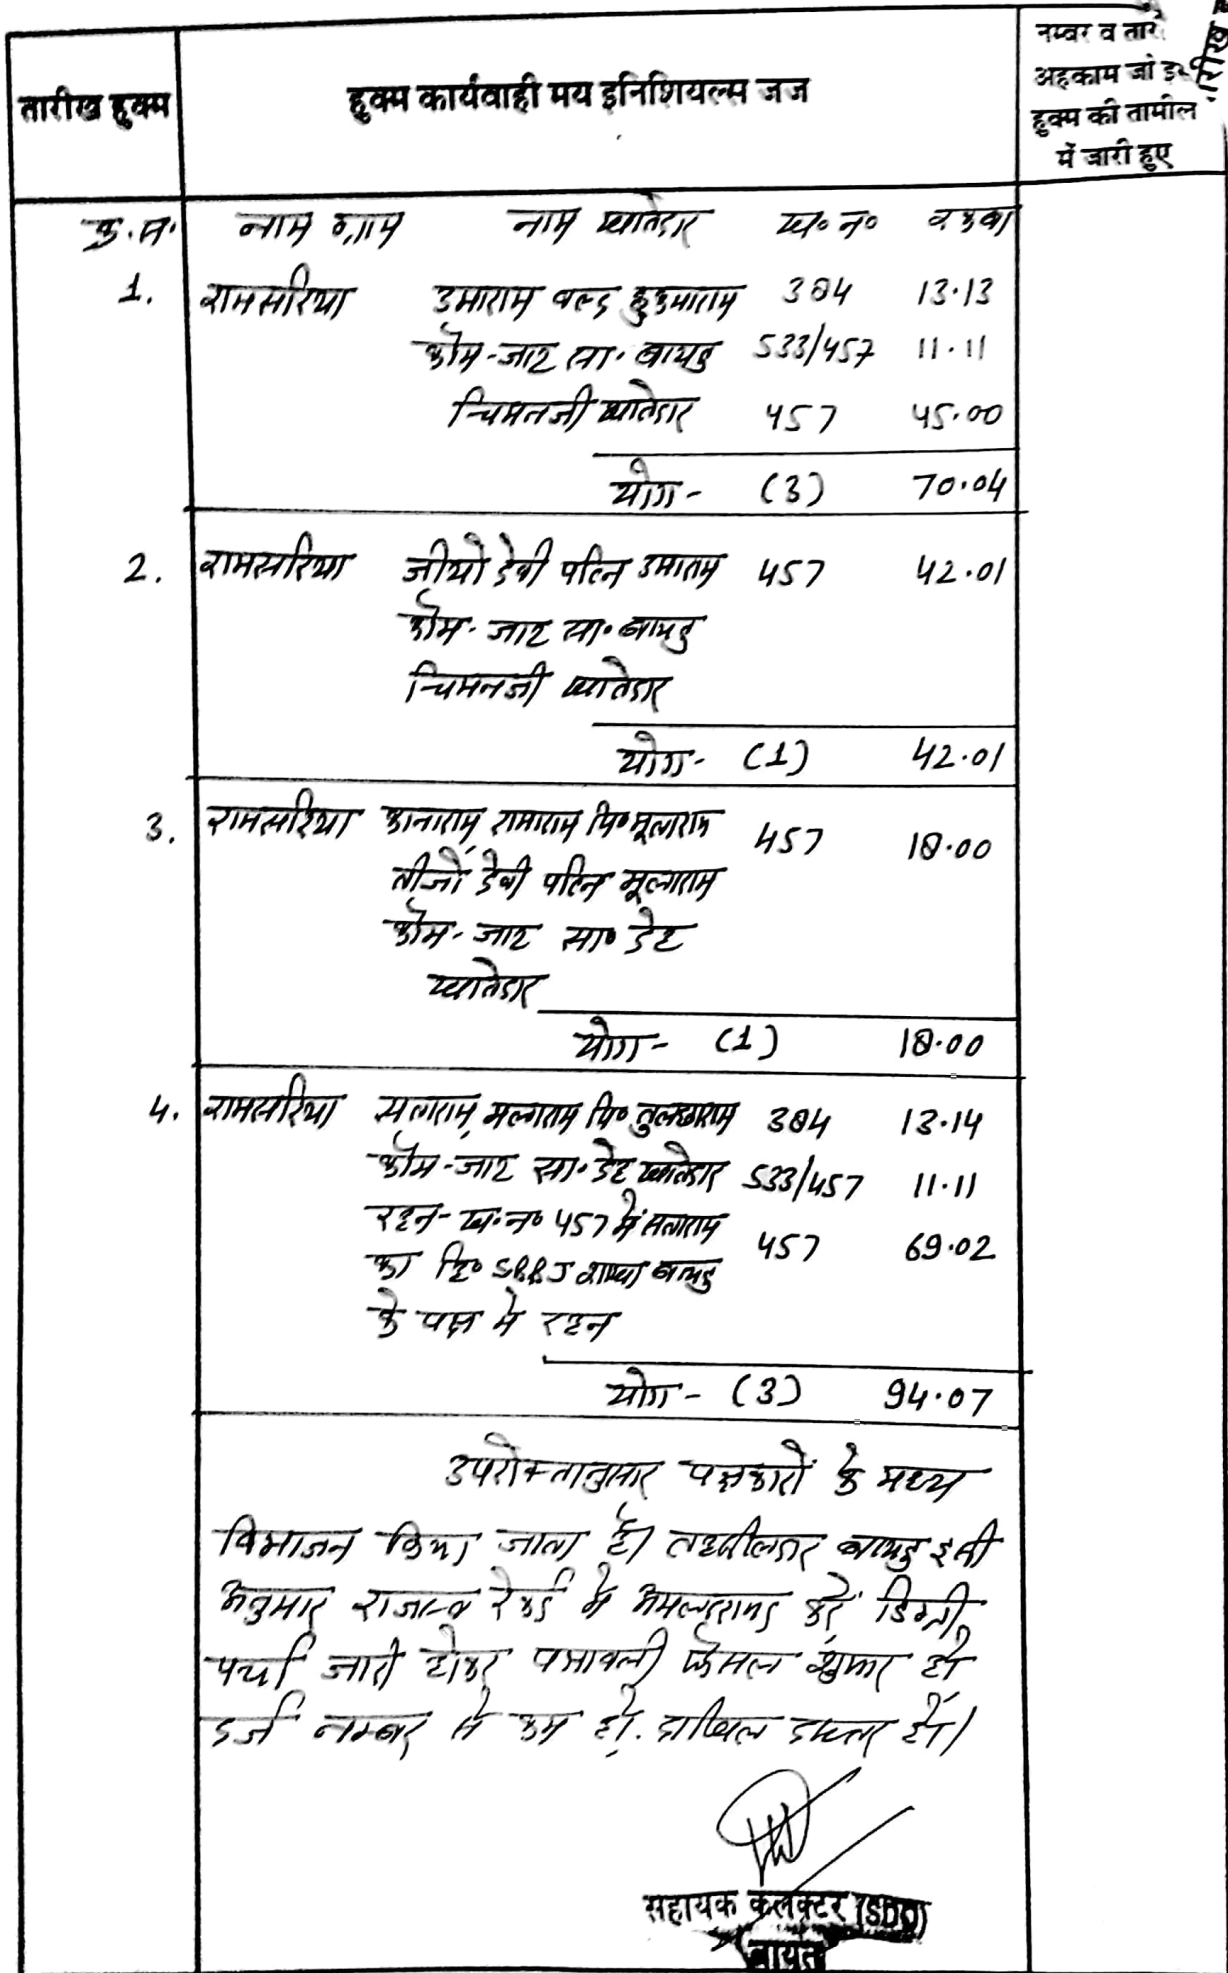 तारीख हुक्म
हुक्म कार्यवाही मय इनिशियल्स जज
नम्बर व तारीख
अहकाम जो इस
हुक्म की तामील
में जारी हुए
क्र.स. नाम ग्राम नाम खातेदार ख० न० रकबा
1. रामसरिया उमाराम वल्द हुकमाराम 384 13.13
कौम-जाट सा. बायतु 533/457 11.11
चिमनजी खातेदार 457 45.00
योग- (3) 70.04
2. रामसरिया जीयो देवी पत्नि उमाराम 457 42.01
कौम-जाट सा० बायतु
चिमनजी खातेदार
योग- (1) 42.01
3. रामसरिया कानाराम, रामाराम पि० मूलाराम 457 18.00
तीजों देवी पत्नि मूलाराम
कौम-जाट सा० देह
खातेदार
योग- (1) 18.00
4. रामसरिया सताराम, मलाराम पि० तुलछाराम 384 13.14
कौम-जाट सा. देह खातेदार 533/457 11.11
रहन- ख.न० 457 में सताराम 457 69.02
का हि० SBBJ शाखा बायतु
के पक्ष मे रहन
योग- (3) 94.07
उपरोक्तानुसार पक्षकारों के मध्य
विभाजन किया जाता है। तहसीलदार बायतु इसी
अनुसार राजस्व रेकर्ड मे अमलदरामद करें, डिक्री
पर्चा जारी होकर पत्रावली फैसल शुमार हो
दर्ज नम्बर से कम हो. दाखिल दफ्तर हों।
सहायक कलक्टर (SDO)
बायतु